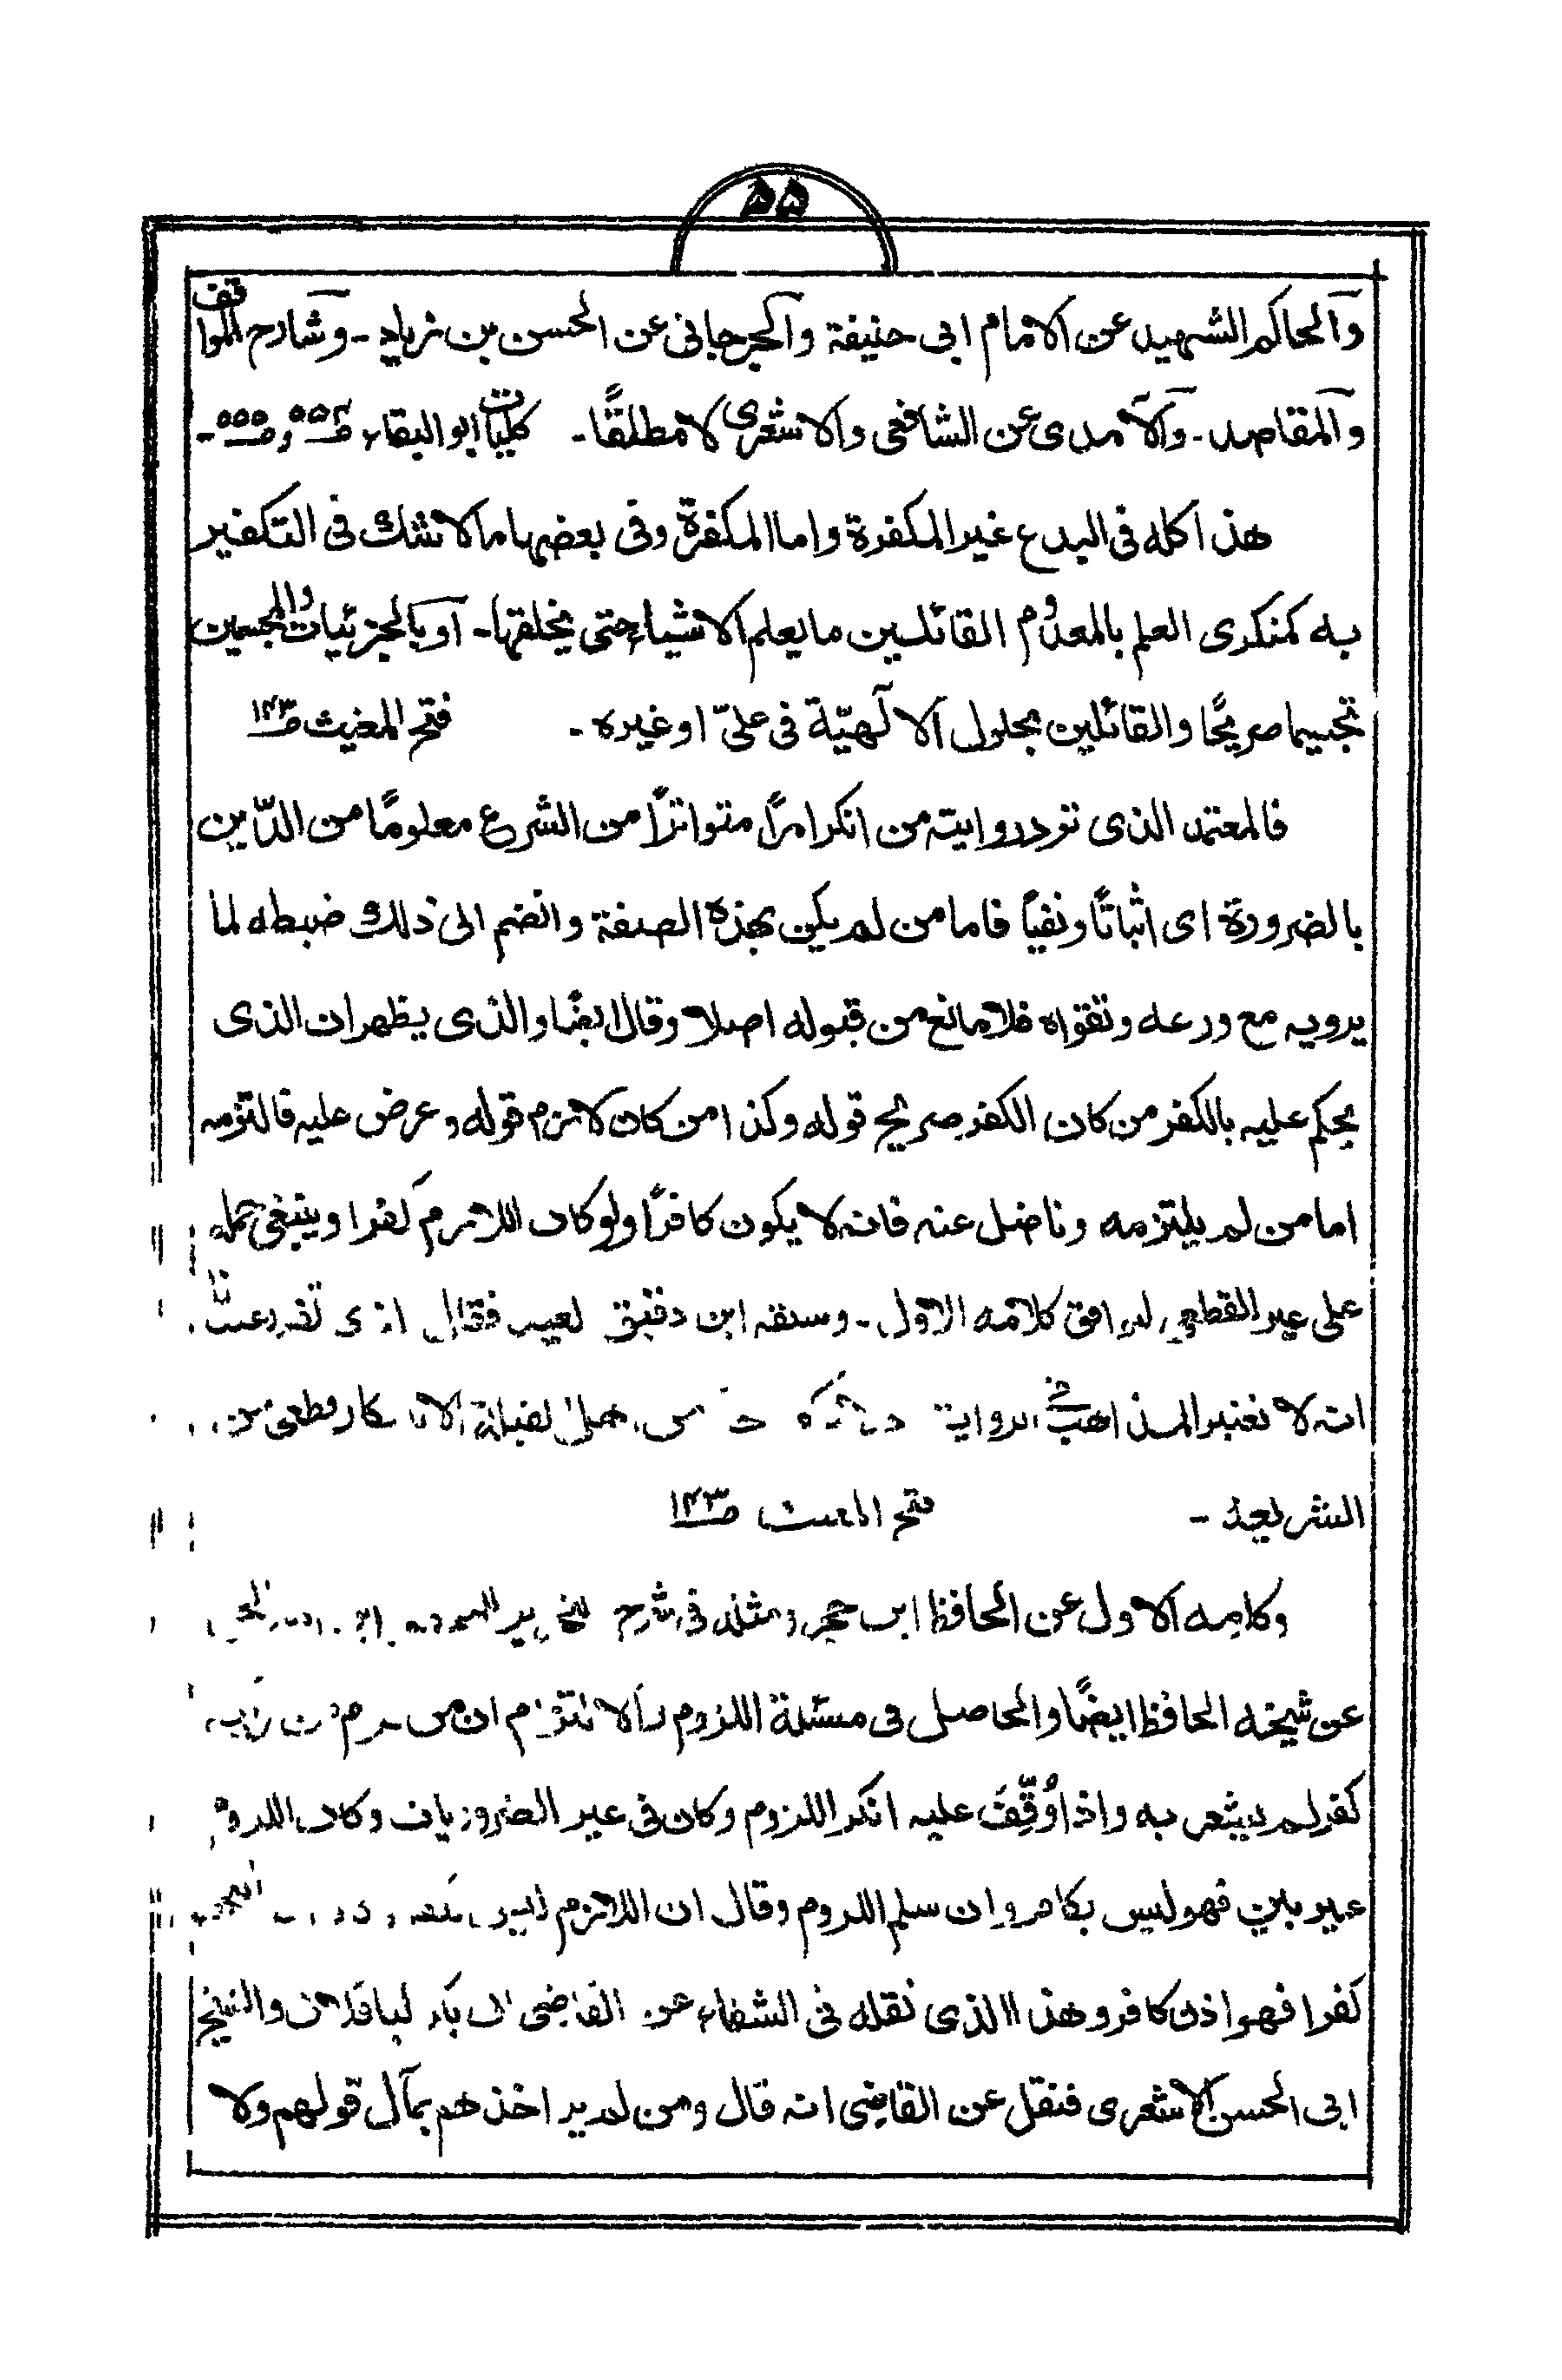 ۵۵
والحاكم الشهيد عن الامام ابی حنيفة والجرجانی عن الحسن بن زياد - وشارح المواقف
والمقاصد - والآمدی عن الشافعی والاشعری لا مطلقًا - كليات ابو البقاء ص۵۵۴ وص۵۵۵ -
هذا كله فی البدع غير المكفرة واما المكفرة وفی بعضها ما لا نشك فی التكفير
به كمنكری العلم بالمعدوم القائلين ما يعلم الاشياء حتی يخلقها - او بالجزئيات والمجسمين
تجسيما صريحًا والقائلين بحلول الالٰهيّة فی علیّ او غيره - فتح المغيث ص۱۴۳
فالمعتمد الذی تردد روايته من انكر امرًا متواترًا من الشرع معلومًا من الدّين
بالضرورة ای اثباتًا ونفيًا فاما من لم يكن بهذه الصفة وانضم الی ذلك ضبطه لما
يرويه مع ورعه وتقواه فلا مانع من قبوله اصلا وقال ايضًا والذی يظهر ان الذی
يحكم عليه بالكفر من كان الكفر صريح قوله وكذا من كان لازم قوله وعرض عليه فالتزمه
اما من لم يلتزمه وناضل عنه فانه لا يكون كافرًا ولو كان اللازم كفرا وينبغی حمله
علی غير القطعی ليوافق كلامه الاول - وسبقه ابن دقيق العيد فقال الذی تقرر عندنا
انه لا نعتبر المذاهب فی الرواية اهل القبلة الا بانكار قطعی من
الشريعة - فتح المغيث ص۱۴۳
وكلامه الاول عن الحافظ ابن حجر ومثله فی شرح التحرير
عن شيخه الحافظ ايضًا والحاصل فی مسئلة اللزوم والالتزام ان من لزم من
كفر لم يشعر به واذا وُقِّفَ عليه انكر اللزوم وكان فی غير الضروريات وكان اللزوم
غير بين فهو ليس بكافر وان سلم اللزوم وقال ان اللازم ليس
كفرا فهو اذن كافر وهذا الذی نقله فی الشفاء عن القاضی ابی بكر الباقلانی والشيخ
ابی الحسن الاشعری فنقل عن القاضی انه قال ومن لم ير اخذهم بمآل قولهم ولا